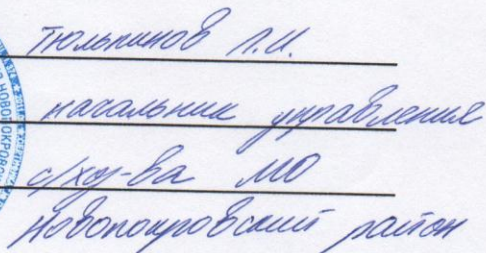 Тюльпинов П.И.
начальник управления
с/хоз-ва МО
Новопокровский район